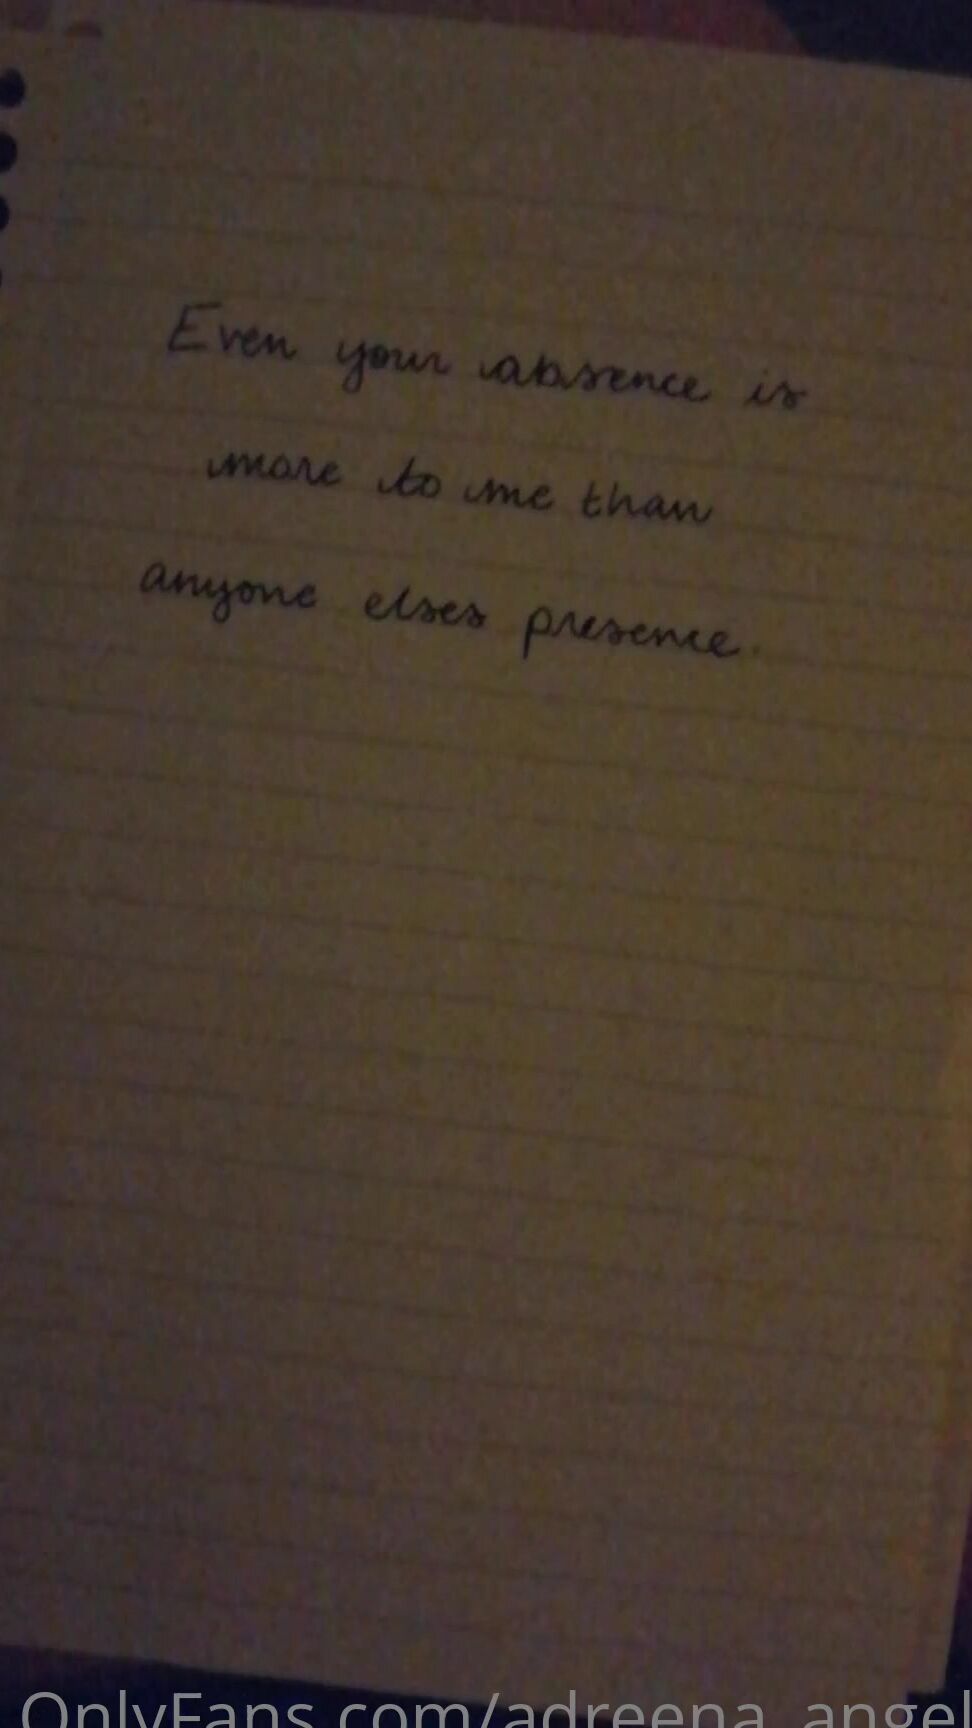 Even your absence is
more to me than
anyone elses presence.
OnlyFans.com/adreena_angel